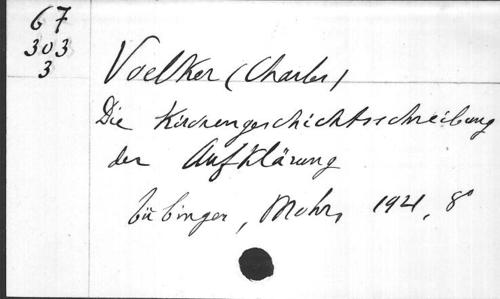 67
303
3
Voelker (Charles)
Die Kirchengeschichtsschreibung
der Aufklärung
Tübingen, Mohr, 1921, 8°